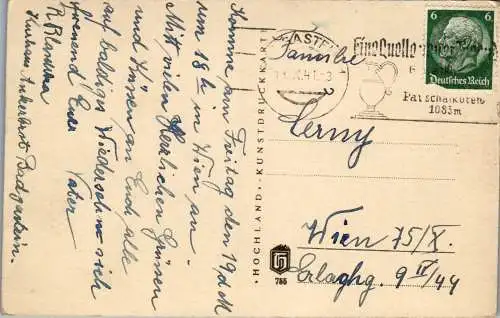 Komme am Freitag den 19. d. M
um 18 h in Wien an.
Mit vielen herzlichen Grüssen
und Küssen an Euch alle
auf baldiges Wiedersehn sich
freuend Euer
Vater
Kurhaus Ankerbrot Badgastein.
HOCHLAND-KUNSTDRUCKKARTE
785
Eine Quelle
6
6
Deutsches Reich
1083m
Familie
Czerny
Wien 75/X.
Erlachg. 9 II/44